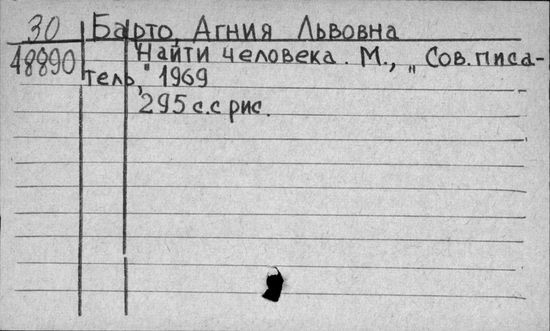 30 Барто, Агния Львовна
48890 Найти человека. М., „Сов.писа-
тель,“ 1969
295 с. с рис.